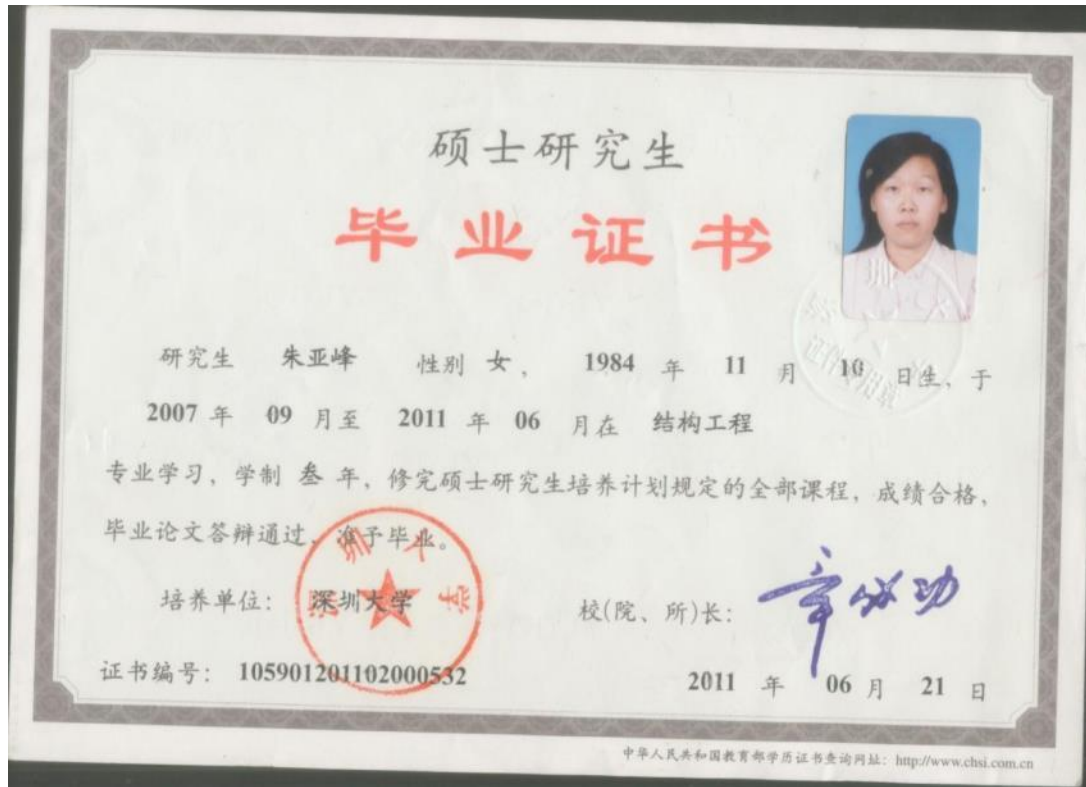 硕士研究生
毕业证书
研究生 朱亚峰 性别 女, 1984 年 11 月 10 日生、于
2007 年 09 月至 2011 年 06 月在 结构工程
专业学习, 学制 叁 年, 修完硕士研究生培养计划规定的全部课程, 成绩合格,
毕业论文答辩通过、准予毕业。
培养单位: 深圳大学
深圳大学
校(院、所)长: 章必功
证书编号: 105901201102000532
2011 年 06 月 21 日
中华人民共和国教育部学历证书查询网址: http://www.chsi.com.cn